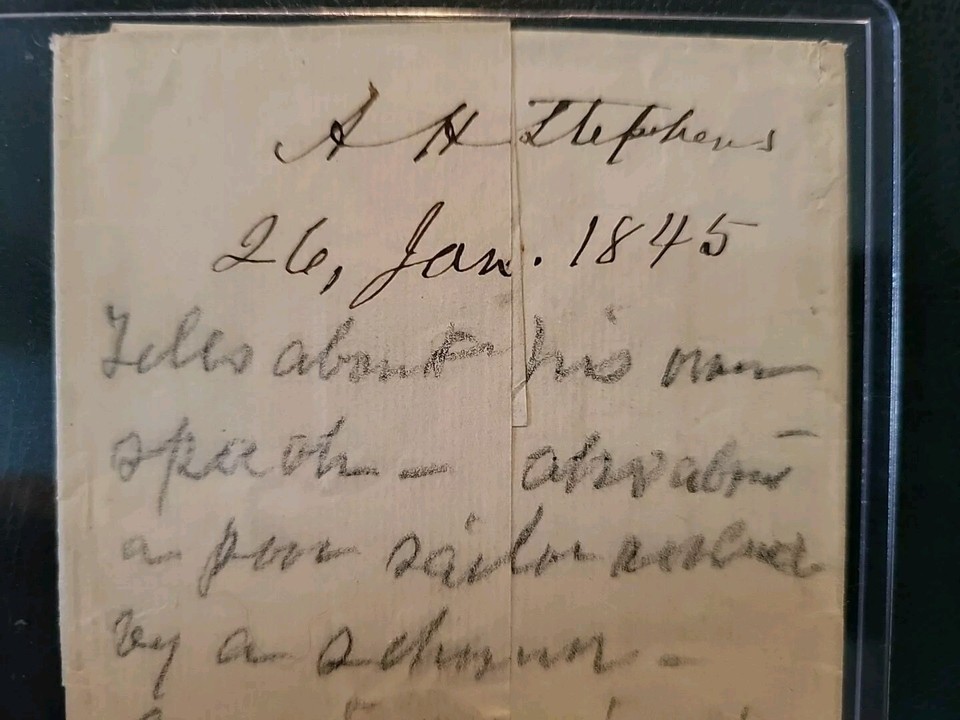 A H Stephens
26, Jan. 1845
Tells about his own
speech – also about
a poor sailor rescued
by a schooner –